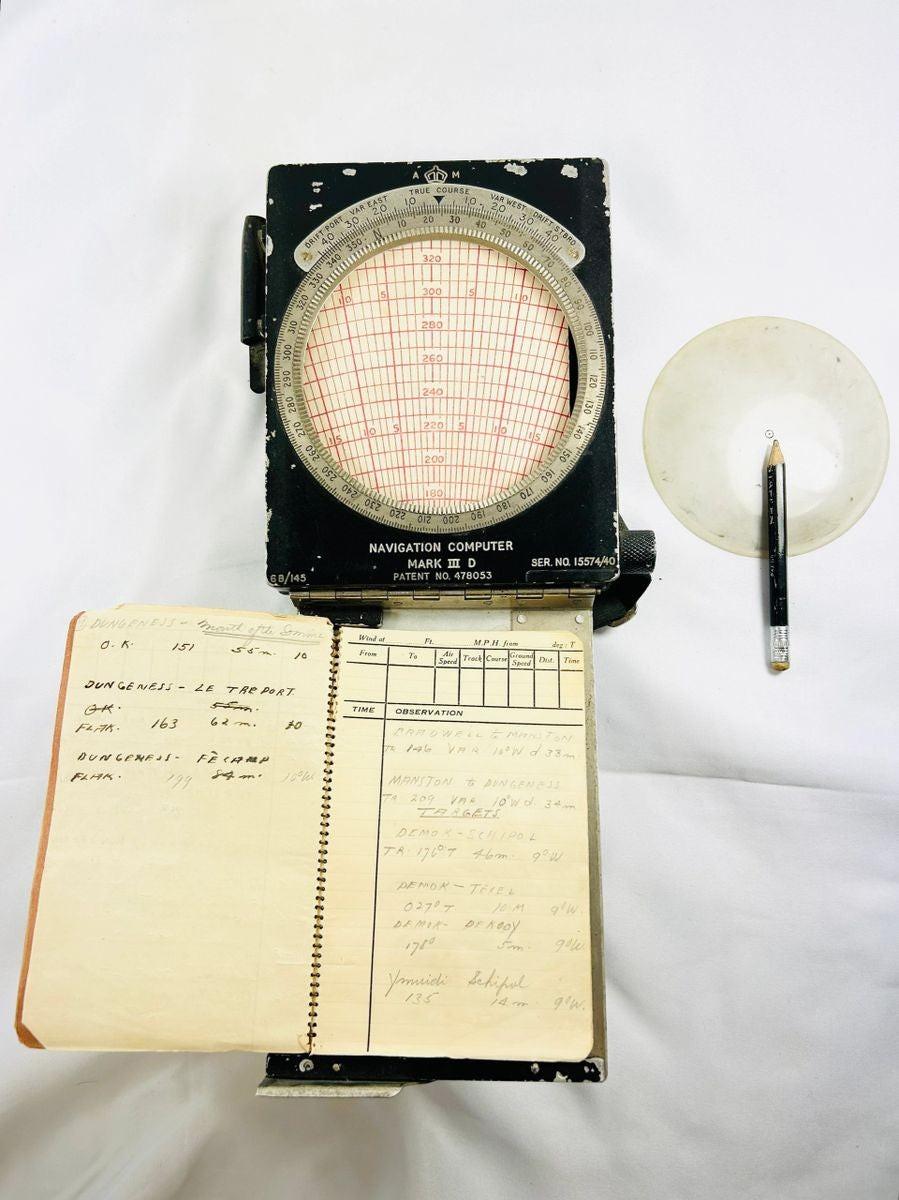 A M
TRUE COURSE
DRIFT PORT VAR EAST VAR WEST DRIFT STBRD
40 30 20 10 10 20 30 40
320
10 5 300 5 10
280
260
240
15 10 5 220 5 10 15
200
180
NAVIGATION COMPUTER
MARK III D
PATENT NO. 478053
6B/145
SER. NO. 15574/40
DUNGENESS - Mouth of the Somme
O.K. 151 55 m. 10
DUNGENESS - LE TREPORT
OK. 55m.
FLAK. 163 62 m. 10
DUNGENESS - FÈCAMP
FLAK. 199 84 m. 10°W
Wind at Ft. M.P.H. from deg: T
From To Air Speed Track Course Ground Speed Dist. Time
TIME OBSERVATION
BRADWELL to MANSTON
TR 146 VAR 10°W d 33m
MANSTON to DUNGENESS
TR 209 VAR 10°W d. 34m
TARGETS
DEMOK - SCHIPOL
TR. 176°T 46m. 9°W
DEMOK - TEXEL
027°T 10 M 9°W.
DEMOK - DEKOOY
178° 5m. 9°W.
Ymuidi Schipol
135 14 m. 9°W.